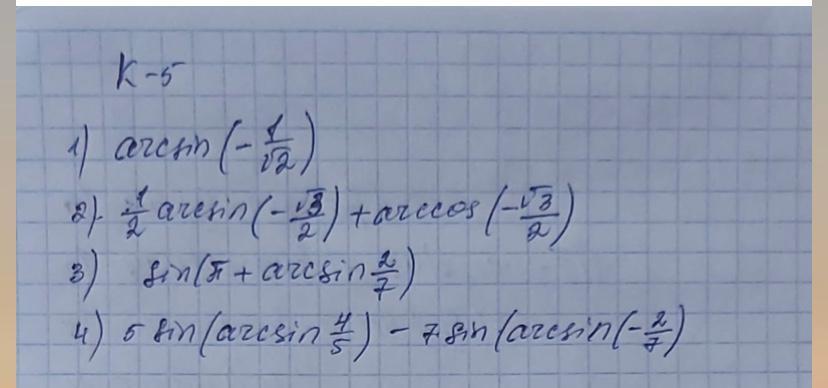 K-5
1) arcsin(-1/√2)
2) 1/2 arcsin(-√3/2)+arccos(-√3/2)
3) sin(π+arcsin 2/7)
4) 5 sin(arcsin 4/5) - 7 sin(arcsin(-2/7)